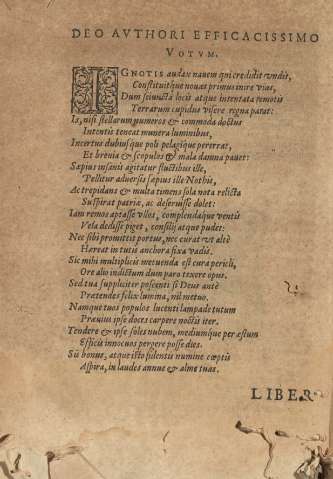 DEO AVTHORI EFFICACISSIMO
VOTVM.
IGNOTIS audax nauem qui credidit vndis,
Constituitque nouas primus inire vias,
Dum seiuncta locis atque intentata remotis
Terrarum cupidus visere regna parat:
Is, nisi stellarum numeros & commoda doctus
Intentis teneat munera luminibus,
Incertus dubiusque poli pelagique pererrat,
Et breuia & scopulos & mala damna pauet:
Sæpius insanis agitatur fluctibus ille,
Pellitur aduersis sæpius ille Nothis,
Ac trepidans & multa timens sola nota relicta
Suspirat patriæ, ac deseruisse dolet:
Iam remos aptasse illos, complendaque ventis
Vela dedisse piget, consilijque pudet:
Nec sibi promittit portus, nec curat vt altè
Hæreat in tutis anchora fixa vadis.
Sic mihi multiplicis metuenda est cura pericli,
Ore alio indictum dum paro texere opus.
Sed tua suppliciter poscenti si Deus antè
Prætendes felix lumina, nil metuo.
Namque tuos populos lucenti lampade tutum
Præuius ipse doces carpere noctis iter.
Tendere & ipse soles nubem, mediumque per æstum
Efficis innocuos pergere posse dies.
Sis bonus, atque isto silentis numine cœptis
Aspira, in laudes annue & alme tuas.
LIBER